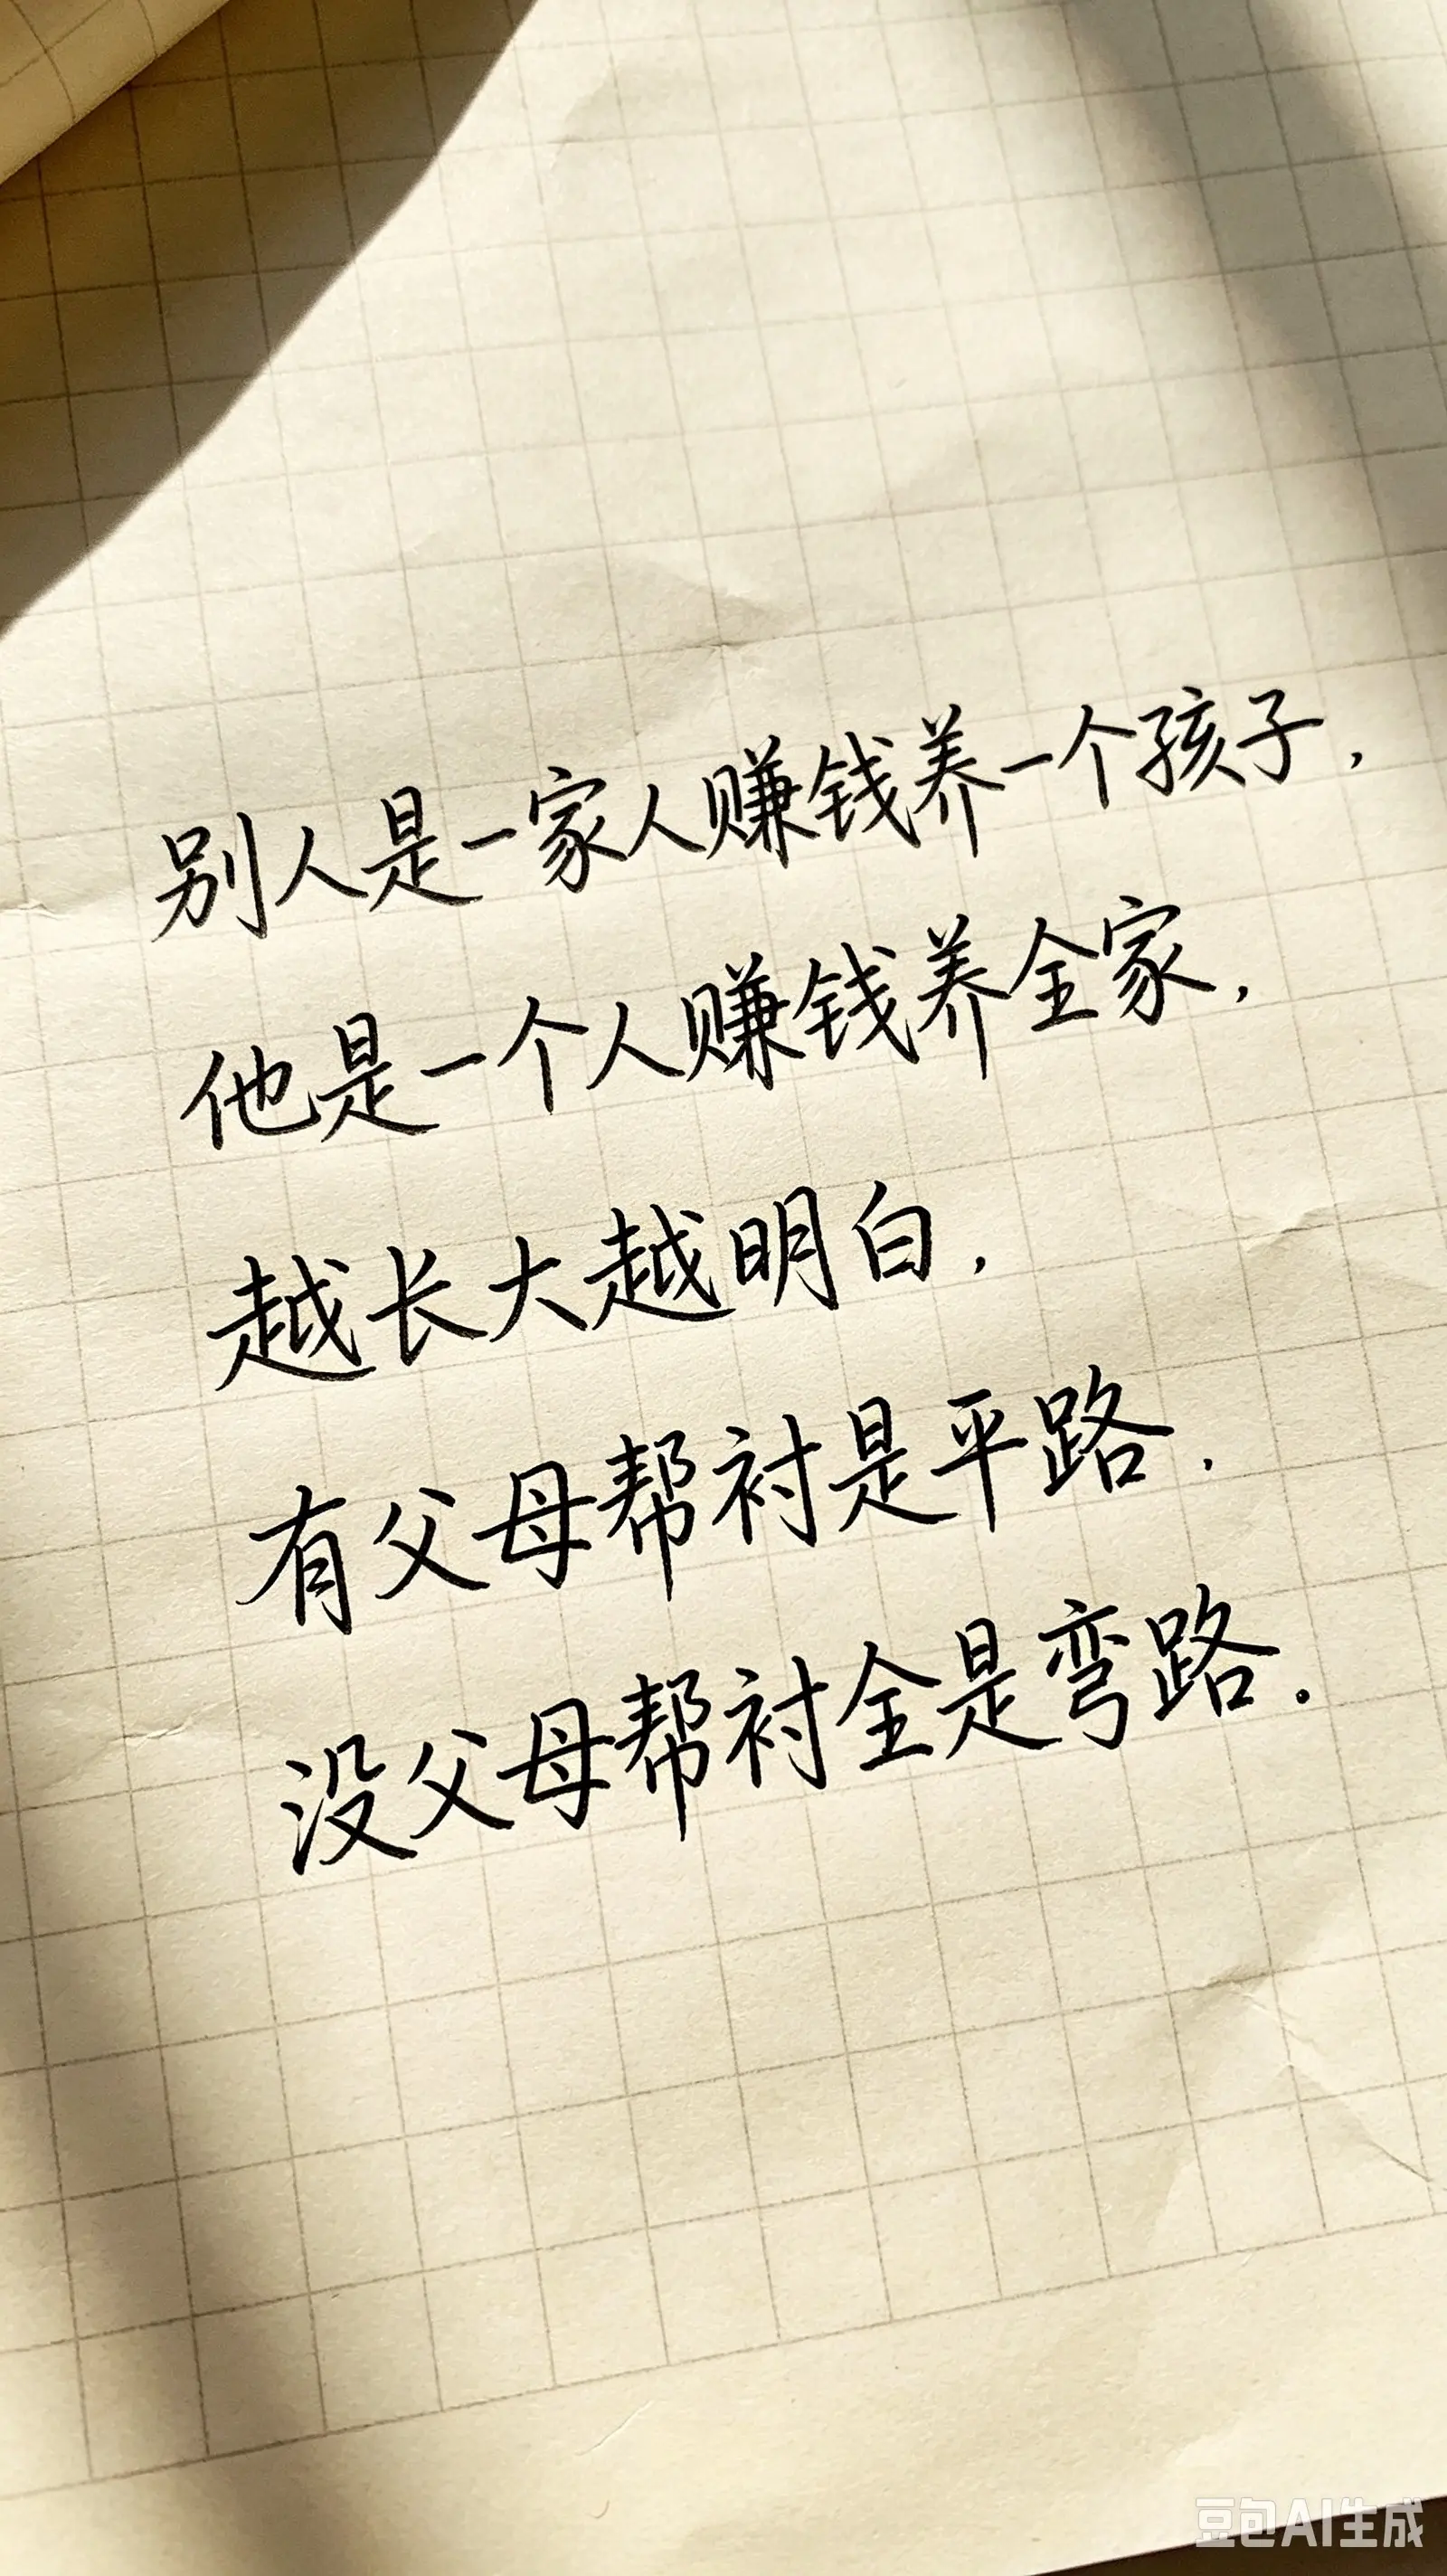 别人是一家人赚钱养一个孩子，
他是一个人赚钱养全家，
越长大越明白，
有父母帮衬是平路，
没父母帮衬全是弯路．
豆包AI生成